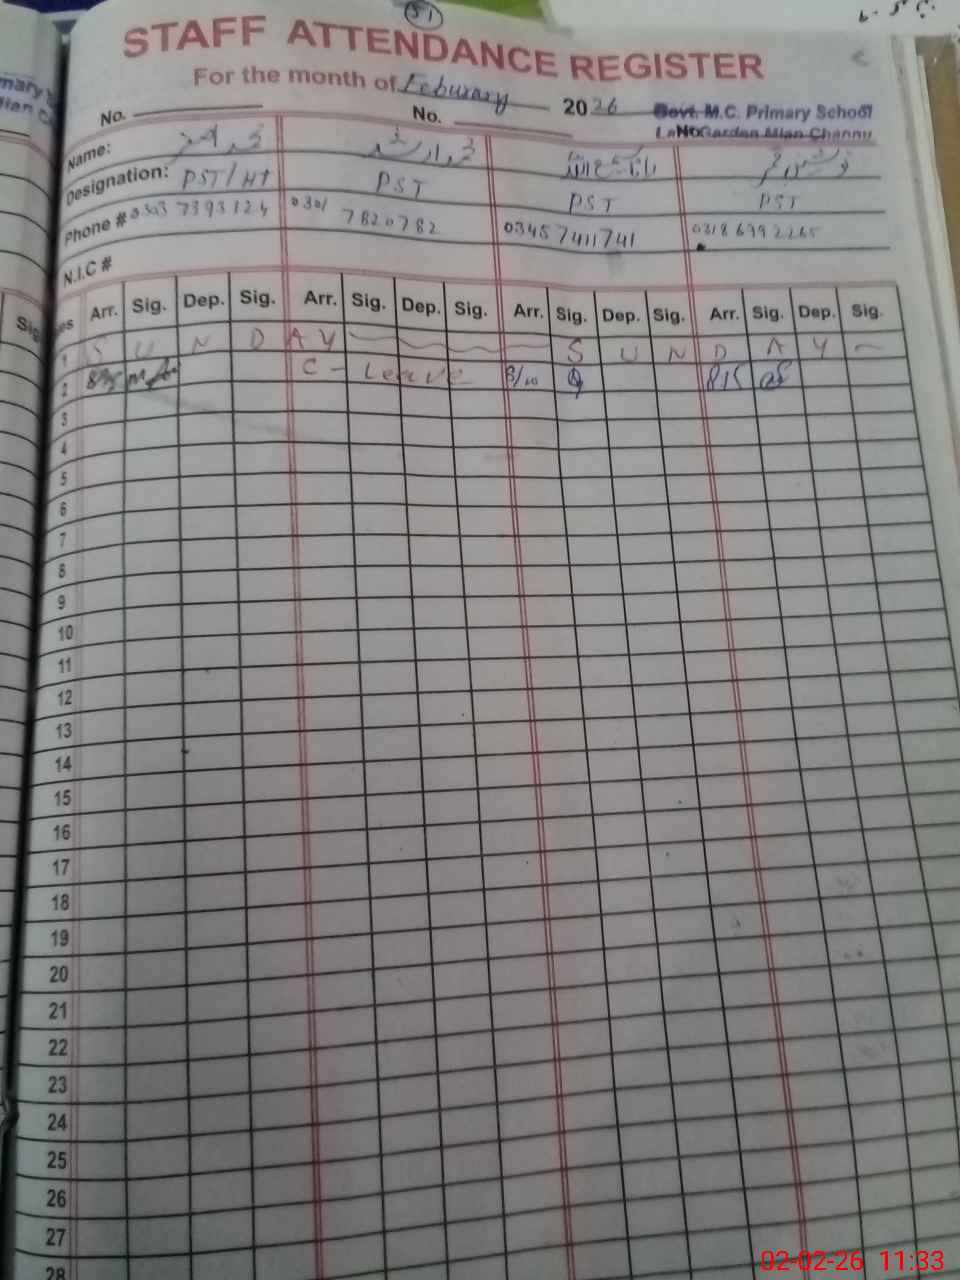 51
STAFF ATTENDANCE REGISTER
For the month of Feburary 2026
Govt. M.C. Primary School
No. No. No.
Garden Mian Channu
Name: محمد محمد
Designation: PST/HT PST PST PST
Phone # 0303 7393124 0301 7820782 03457411741 0318 6992265
N.I.C #
Arr. Sig. Dep. Sig. Arr. Sig. Dep. Sig. Arr. Sig. Dep. Sig. Arr. Sig. Dep. Sig.
1 S U N D A Y S U N D A Y
2 C - Leave 8/10 815
3
4
5
6
7
8
9
10
11
12
13
14
15
16
17
18
19
20
21
22
23
24
25
26
27
28
02-02-26 11:33